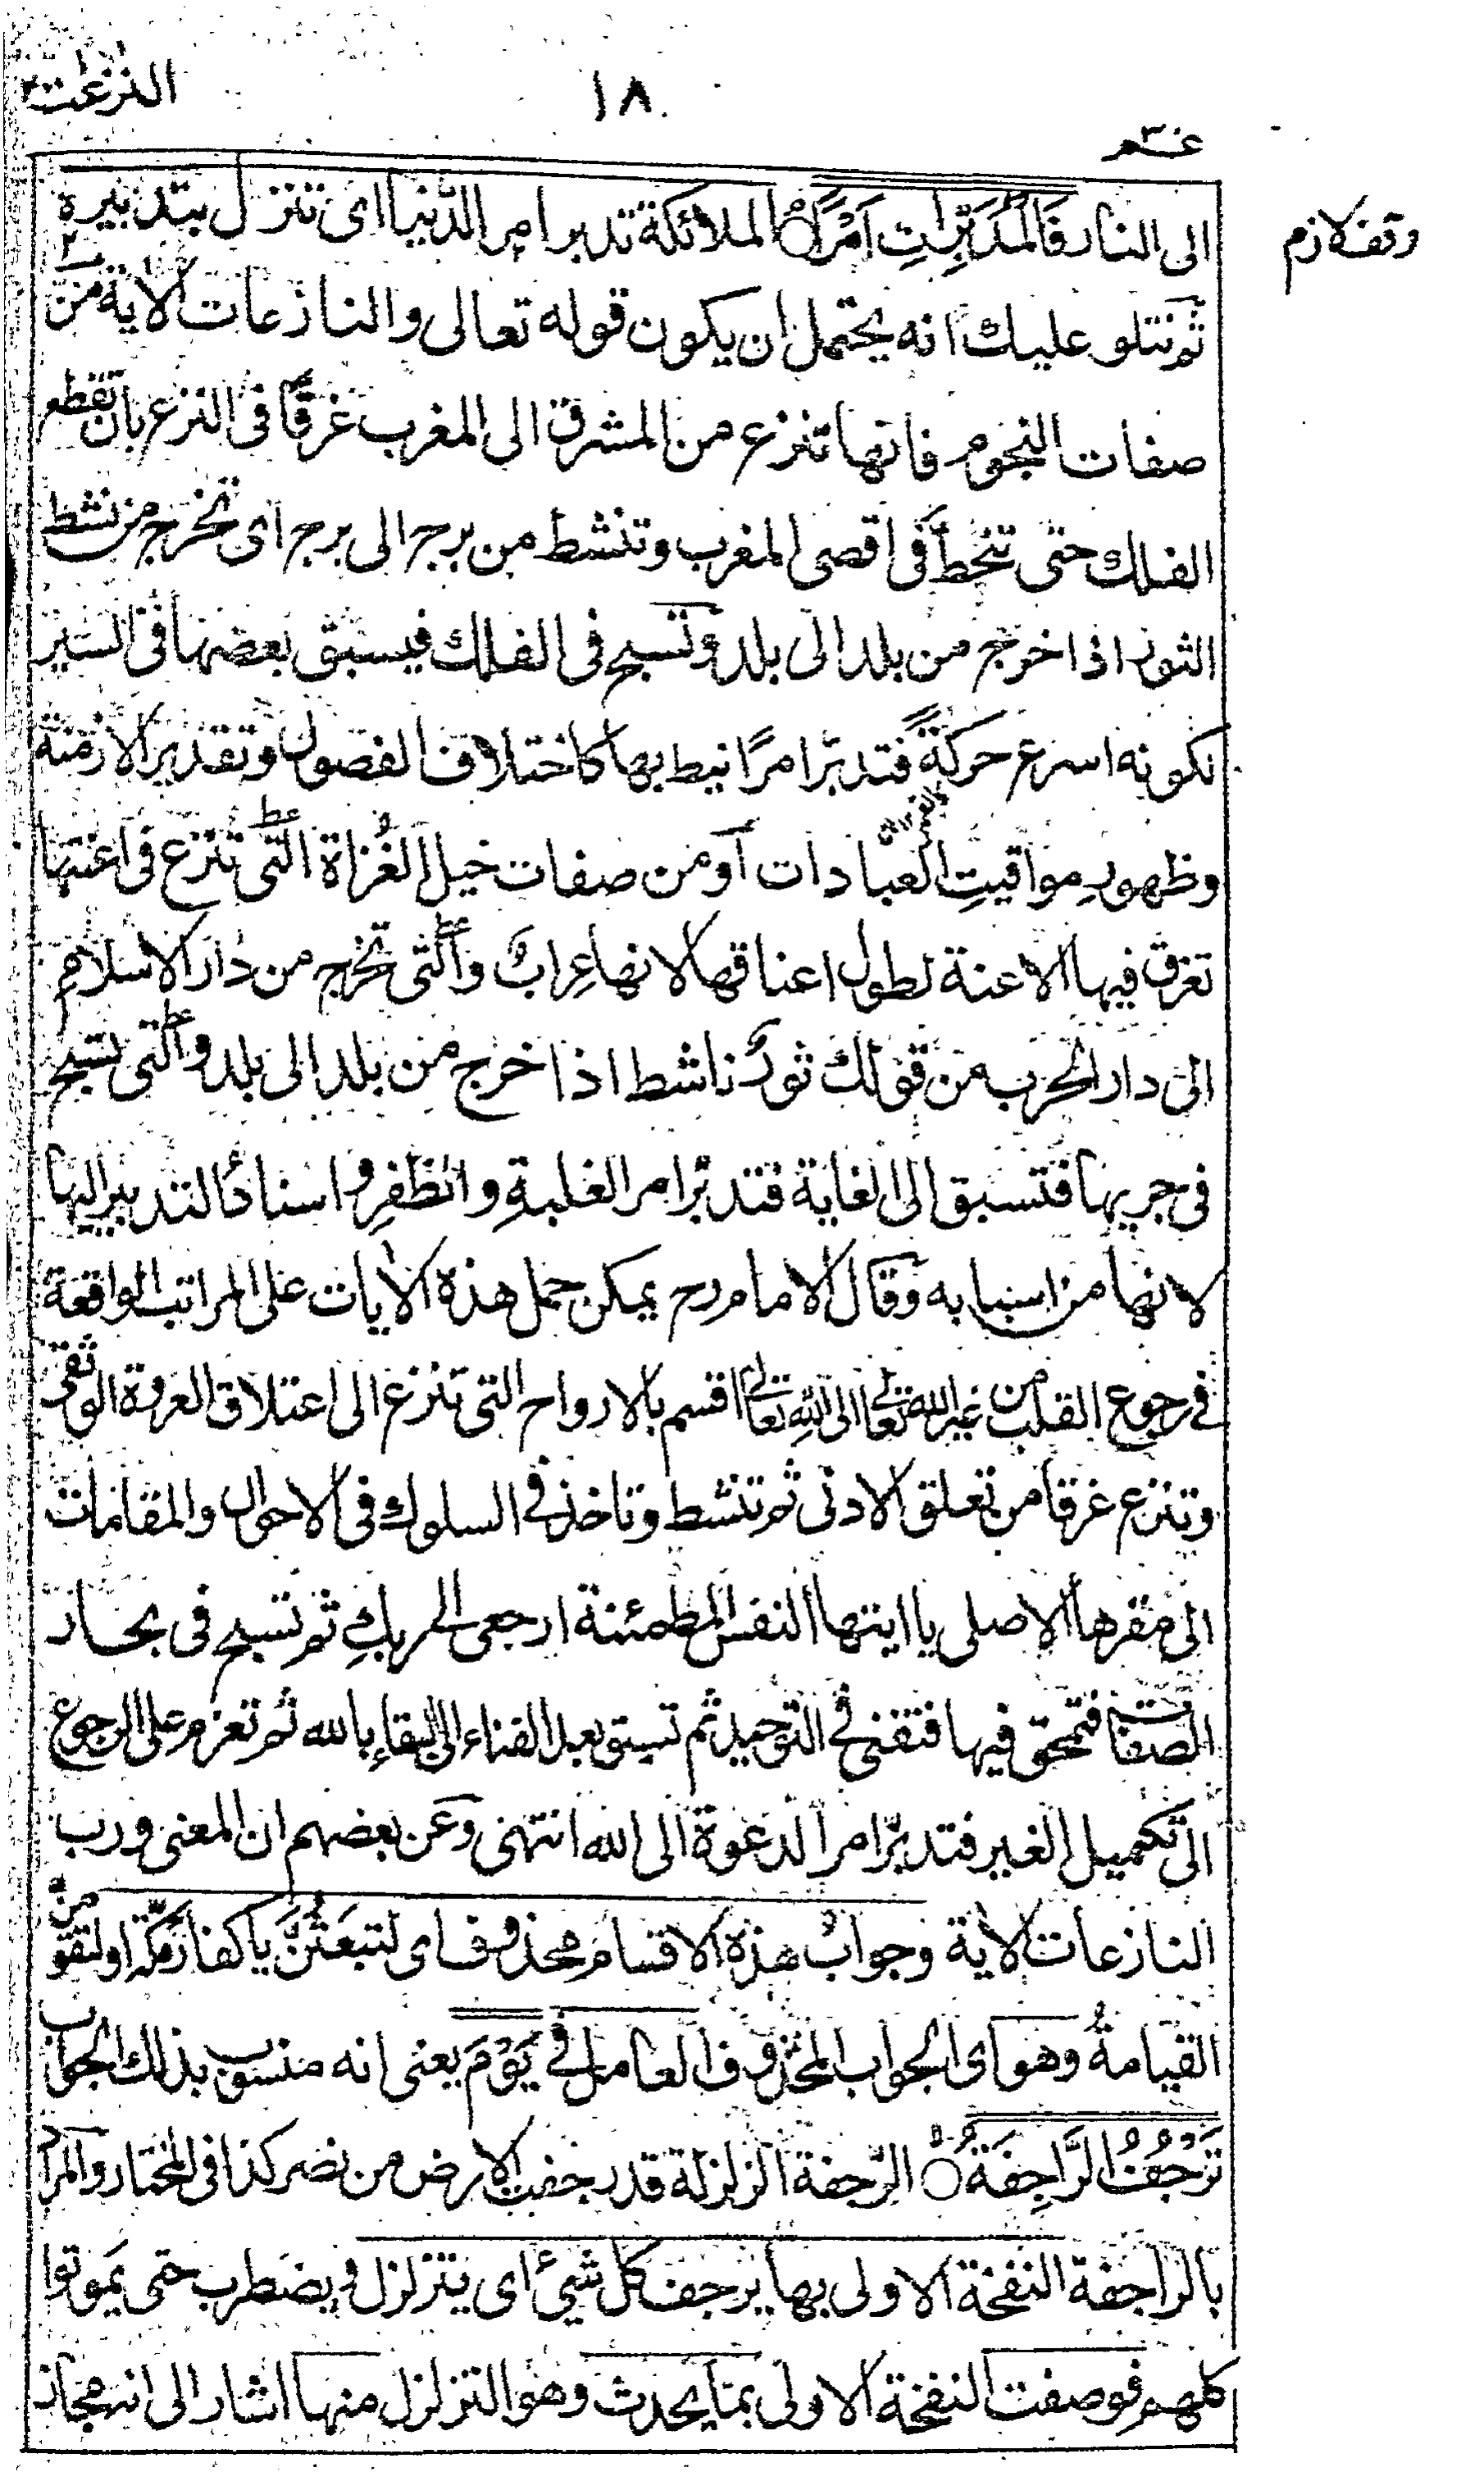 النزعت
١٨
عـ٣ـم
وقف لازم
الى النار فَالْمُدَبِّرَاتِ اَمْرًا ۘ الملائكة تدبر امر الدنيا اى تنزل بتدبيره
ثم نتلو عليك انه يحتمل ان يكون قوله تعالى والنازعات الاية من
صفات النجوم فانها تنزع من المشرق الى المغرب غرقًا فى النزع بان تقطع
الفلك حتى تنحط فى اقصى المغرب وتنشط من برج الى برج اى تخرج من نشط
الثور اذا خرج من بلد الى بلد وتسبح فى الفلك فيسبق بعضها فى السير
لكونه اسرع حركةً فتدبّر امرًا نيط بها كاختلاف الفصول وتقدير الازمنة
وظهورِ مواقيتِ العبادات اَو من صفات خيل الغُزاة التى تنزع فى اعنتها
تغرق فيها الاعنة لطول اعناقها لانها عِرابٌ والتى تخرج من دار الاسلام
الى دار الحرب من قولك ثورٌ ناشط اذا خرج من بلد الى بلد والتى تسبح
فى جريها فتسبق الى الغاية فتدبّر امر الغلبةِ والظفرِ واسنادُ التدبير اليها
لانها من اسبابه وَقال الامام رح يمكن حمل هذه الايات على المراتب الواقعة
فى رجوع القلب من غير الله تعالى الى اللهِ تعالى اقسم بالارواح التى تنزع الى اعتلاق العروة الوثقى
وتنزع غرقا من تعلق الادنى ثم تنشط وتاخذ فى السلوك فى الاحوال والمقامات
الى مقرها الاصلى يا ايتها النفس المطمئنة ارجعى الى ربكِ ثم تسبح فى بحار
الصفات فتمحق فيها فتفنى فى التوحيد ثم تسبق بعد الفناء الى البقاءِ بالله ثم تعزم على الرجوع
الى تكميل الغير فتدبّر امر الدعوة الى الله انتهى وعَن بعضهم ان المعنى ورب
النازعات الاية وجوابُ هذه الاقسام محذوف اى لَتُبعَثُنَّ يا كفار مكّة او لتقومنّ
القيامةُ وهو اى الجواب المحذوف العامل فى يَوْمَ يعنى انه منسوب بذلك الجواب
تَرْجُفُ الرَّاجِفَةُ ۙ الرّجفة الزلزلة قد رجفت الارض من نصر كذا فى المختار والمراد
بالراجفة النفخة الاولى بها يرجف كل شيئ اى يتزلزل ويضطرب حتى يَموتوا
كلهم فوصفت النفخة الاولى بما يحدث وهو التزلزل منها اشار الى انه مجاز